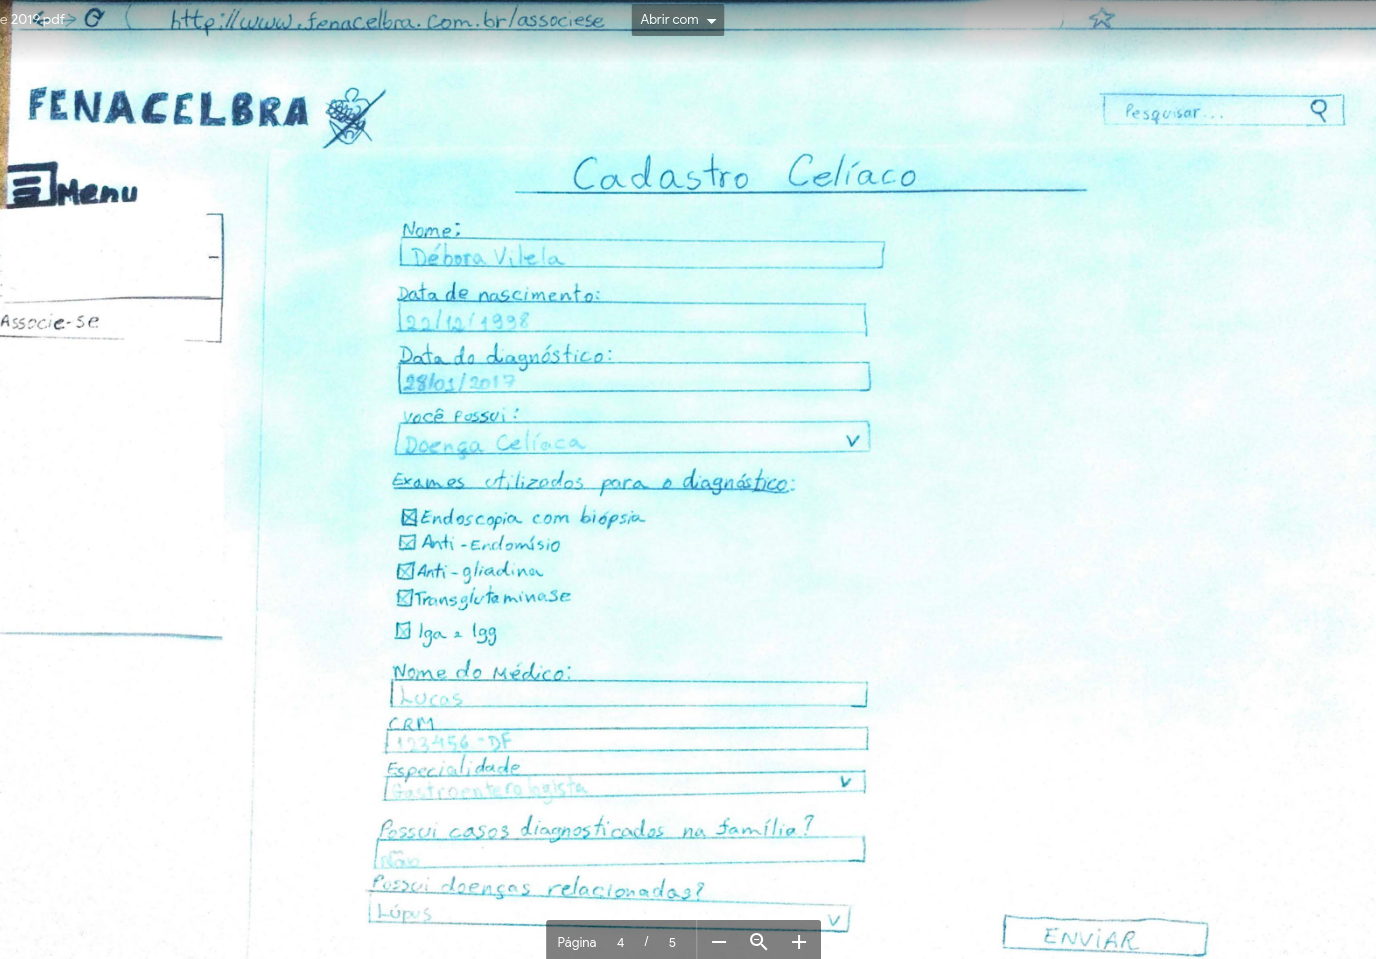 e 2019.pdf
http://www.fenacelbra.com.br/associese
Abrir com
FENACELBRA
Pesquisar...
Menu
Cadastro Celíaco
Associe-se
Nome:
Débora Vilela
Data de nascimento:
22/12/1998
Data do diagnóstico:
28/01/2017
Você Possui:
Doença Celíaca
Exames utilizados para o diagnóstico:
Endoscopia com biópsia
Anti-Endomísio
Anti-gliadina
Transglutaminase
Iga e Igg
Nome do Médico:
Lucas
CRM
123456-DF
Especialidade
Gastroenterologista
Possui casos diagnosticados na família?
Não
Possui doenças relacionadas?
Lúpus
ENVIAR
Página 4 / 5